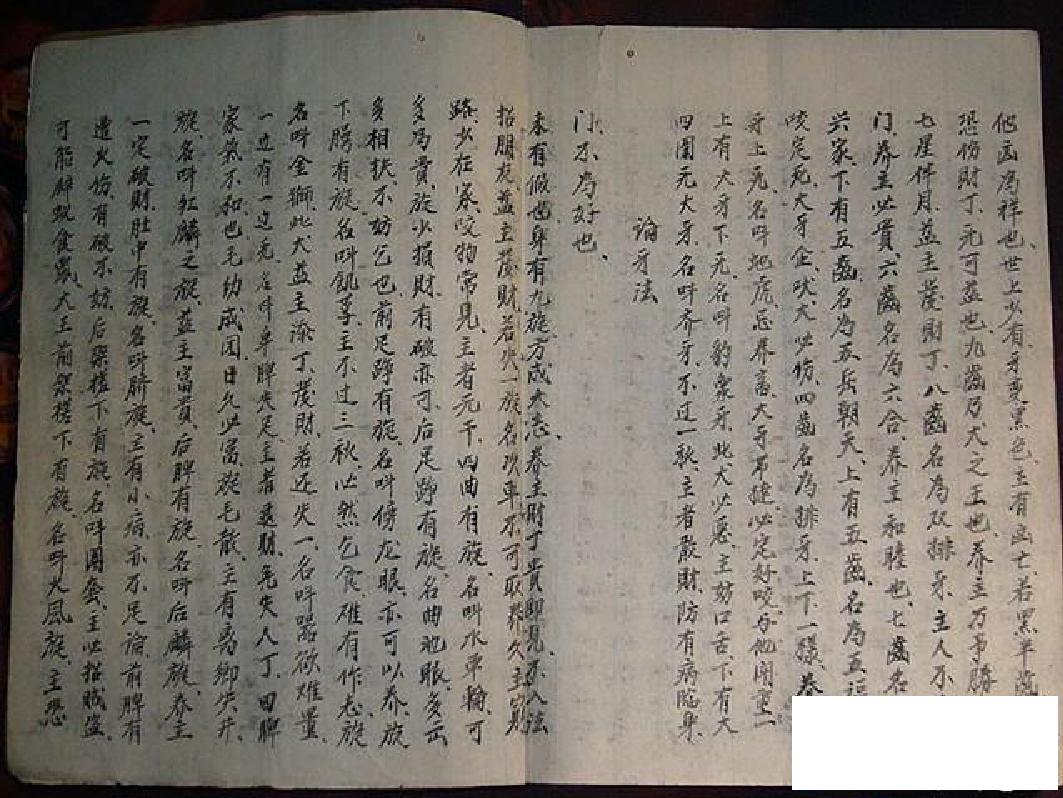 他凶為祥也、世上少有牙变黑色、主有凶亡、若黑半
恐伤財丁、元可益也、九齒乃犬之王也、养主万事勝
七星伴月、益主發財丁、八齒名為双排牙、主人不
门、养主必貴、六齒名為六合、养主和睦也、七齒名
兴家、下有五齒名為五岳朝天、上有五齒、名為五
咬定死、大牙企、吠犬必伤、四齒名為排牙、上下一様、养
牙上元、名呌地虎、忌养畜、大牙不捷、必定好咬、另他闹重一
上有大牙下元、名呌豹牙、此犬必恶、主妨口舌、下有大
四圍元大牙、名呌齐牙、不过一秋、主者散財、防有病臨身、
論牙法
门、不為好也、
未有假也、身有九旋方成大志、养主財丁貴即見、不入法
招朋友、益主發財、若失一旋、名次卑、不可取、养久主窮
路、少在家、咬物常見、主者元干、四曲有旋、名叫水車輪、可
多為貴、旋少損財、有破亦可、后足踭有旋、名曲池眼、多云
多相扶、不妨乞也、前足踭有旋、名呌傍龙眼、亦可以养、旋
下膀有旋、名呌飢等、主不过三秋、必然乞食、雖有作志旋
名呌金獅、此犬益主添丁發財、若近失一、名呌喎欲难量、
一边有一边无、名呌单脾失足、主者退財、免失人丁、四脾
家氣不和也、毛幼成困、日久必富、旋毛散、主有离鄉失井、
旋、名呌紅麟之旋、益主富貴、后脾有旋、名呌后麟旋、养主
一定破財、肚中有旋、名呌臍旋、主有小病、亦不足論、前脾有
遭火伤、有破不妨、后梁柱下有旋、名呌圍套、主必招賊盗、
可能解蚁食歲、犬主前梁柱下有旋、名呌火風旋、主恐